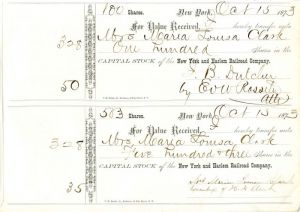 100 Shares. Oct 15 1873
For Value Received, hereby transfer unto
Mrs Maria Louisa Clark
One hundred Shares in the
CAPITAL STOCK of the New York and Harlem Railroad Company.
50
B. Dutcher
by
Atty
503 Shares. Oct 15 1873
For Value Received, hereby transfer unto
Mrs. Maria Louisa Clark
Five hundred & three Shares in the
CAPITAL STOCK of the New York and Harlem Railroad Company.
35